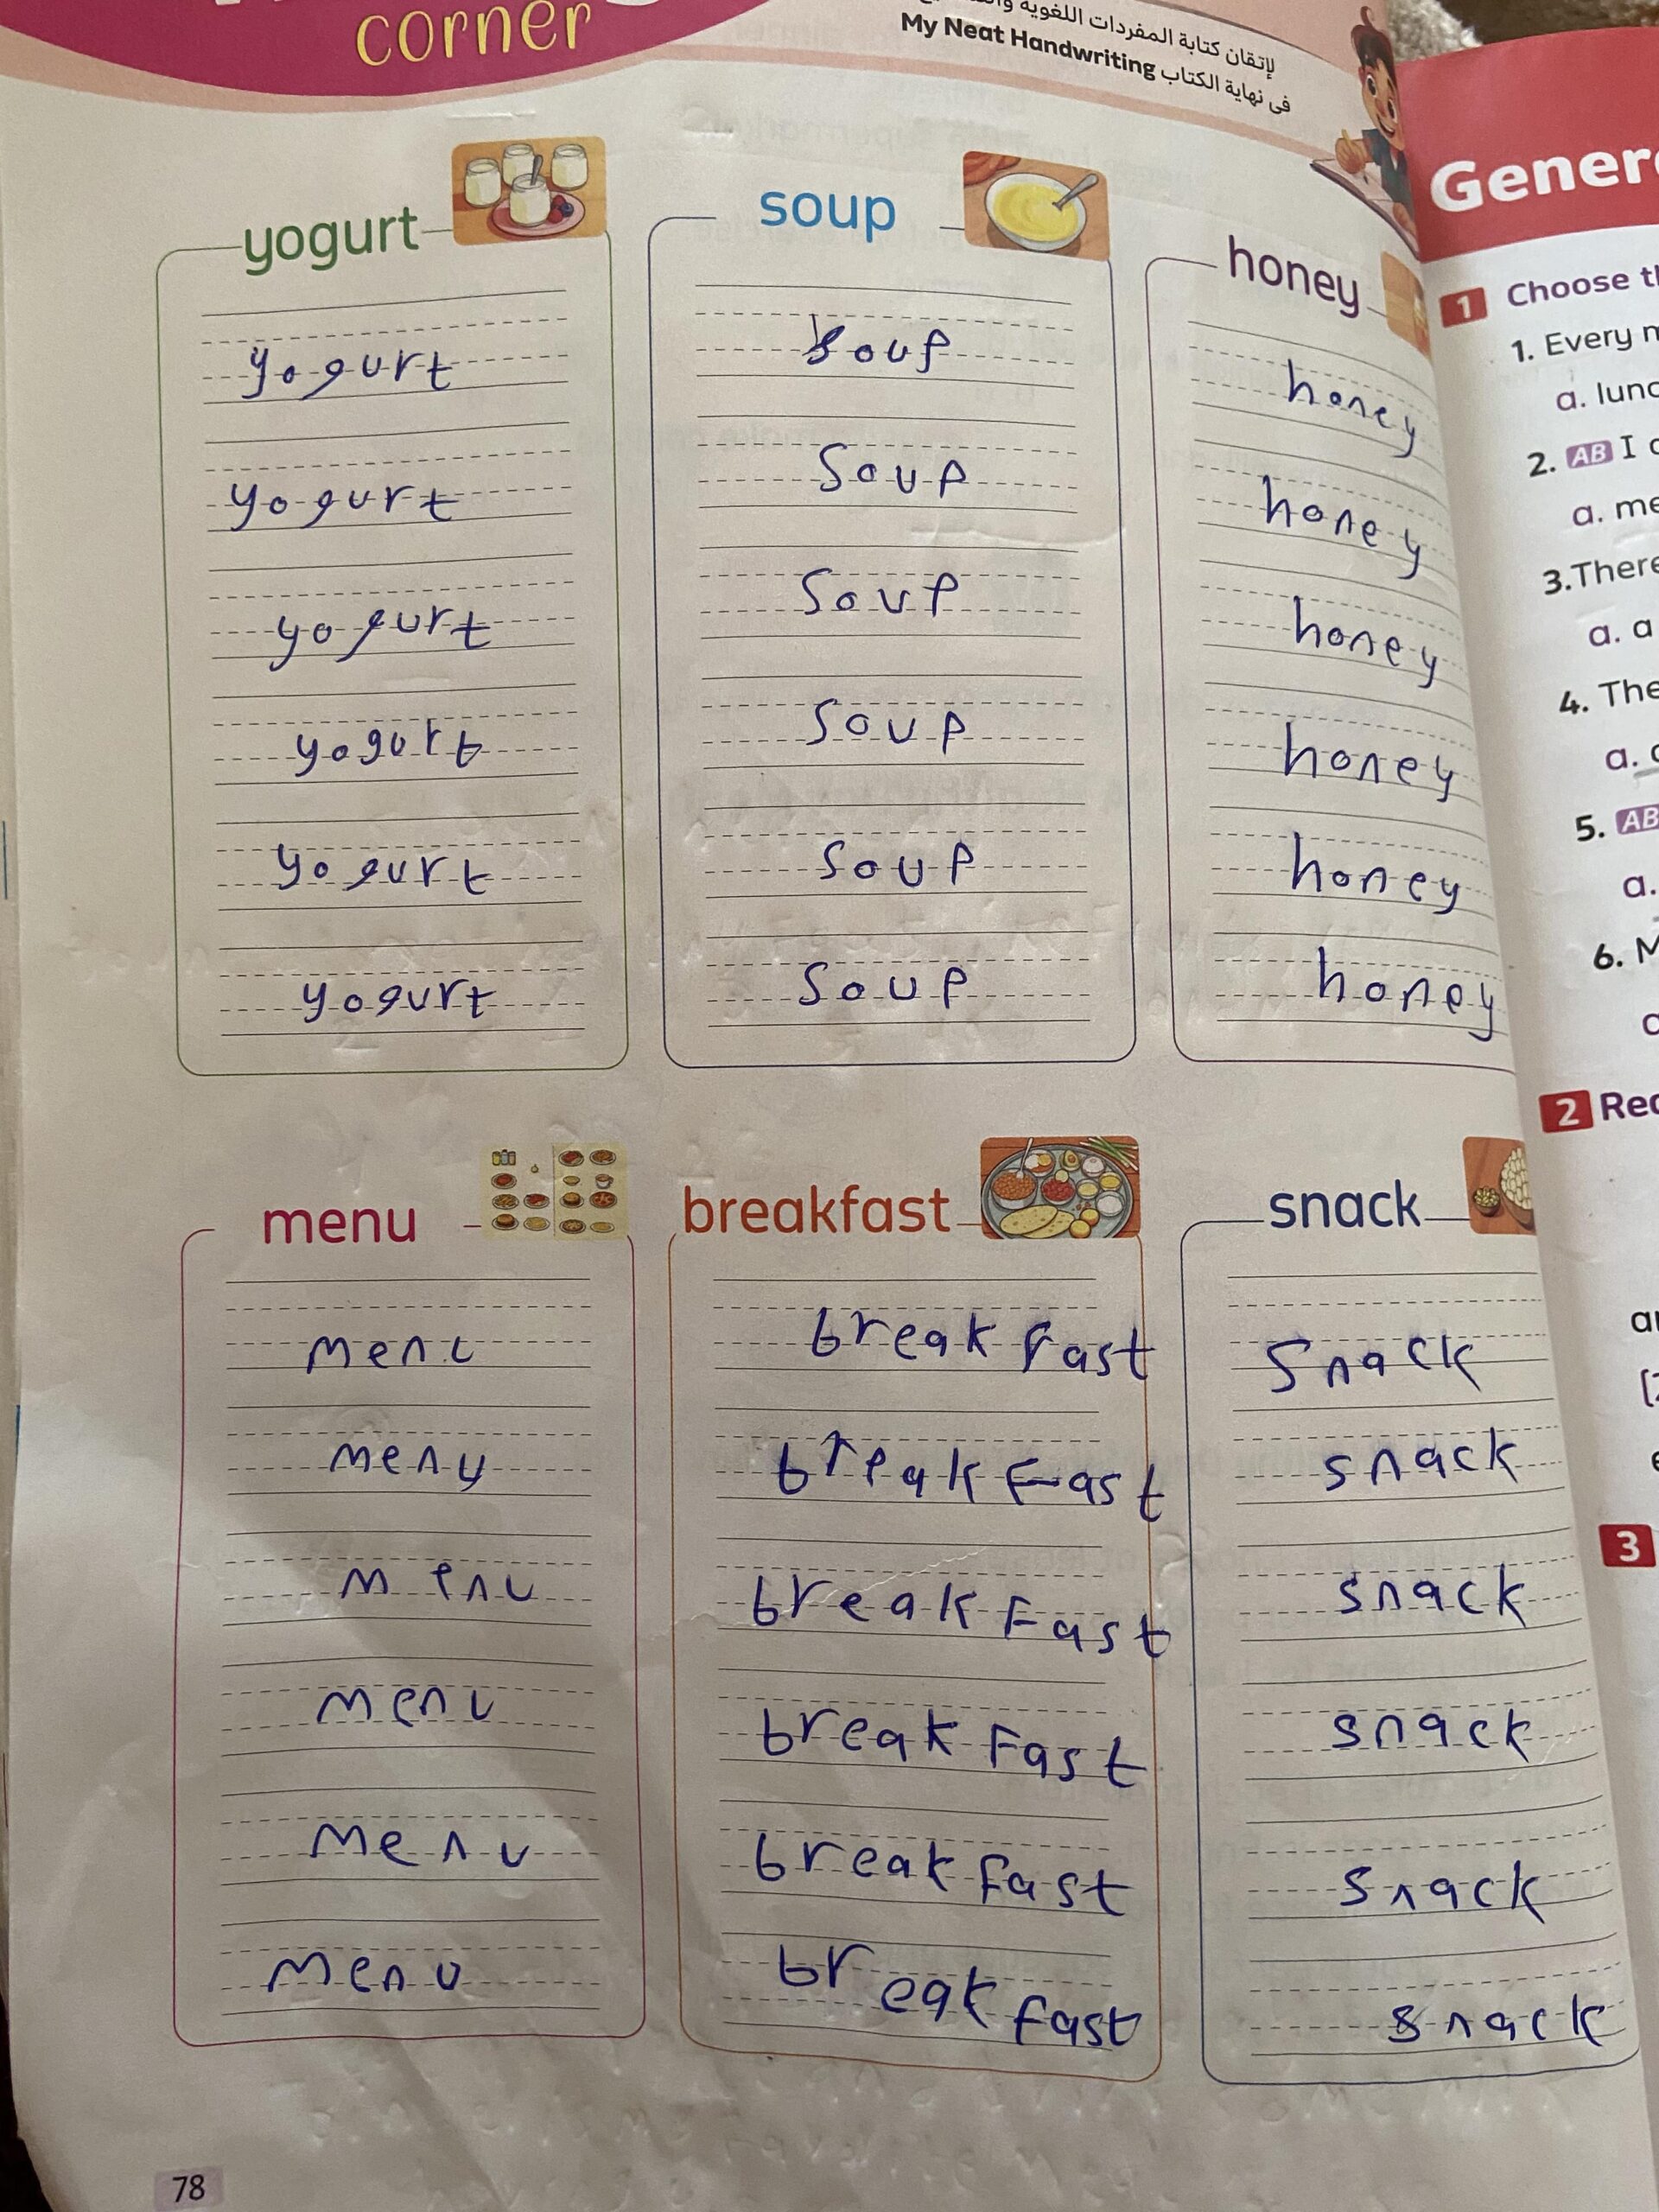 corner
لإتقان كتابة المفردات اللغوية
My Neat Handwriting فى نهاية الكتاب
yogurt
yogurt
yogurt
yogurt
yogurt
yogurt
yogurt
soup
soup
soup
soup
soup
soup
soup
honey
honey
honey
honey
honey
honey
honey
menu
menu
meny
menu
menu
menu
menu
breakfast
break fast
break Fast
break Fast
break Fast
break fast
break fast
snack
snack
snack
snack
snack
snack
snack
78
1 Choose
1. Every
a.
2. AB I
a.
3. There
a. a
4. The
a.
5. AB
a.
6.
2
3